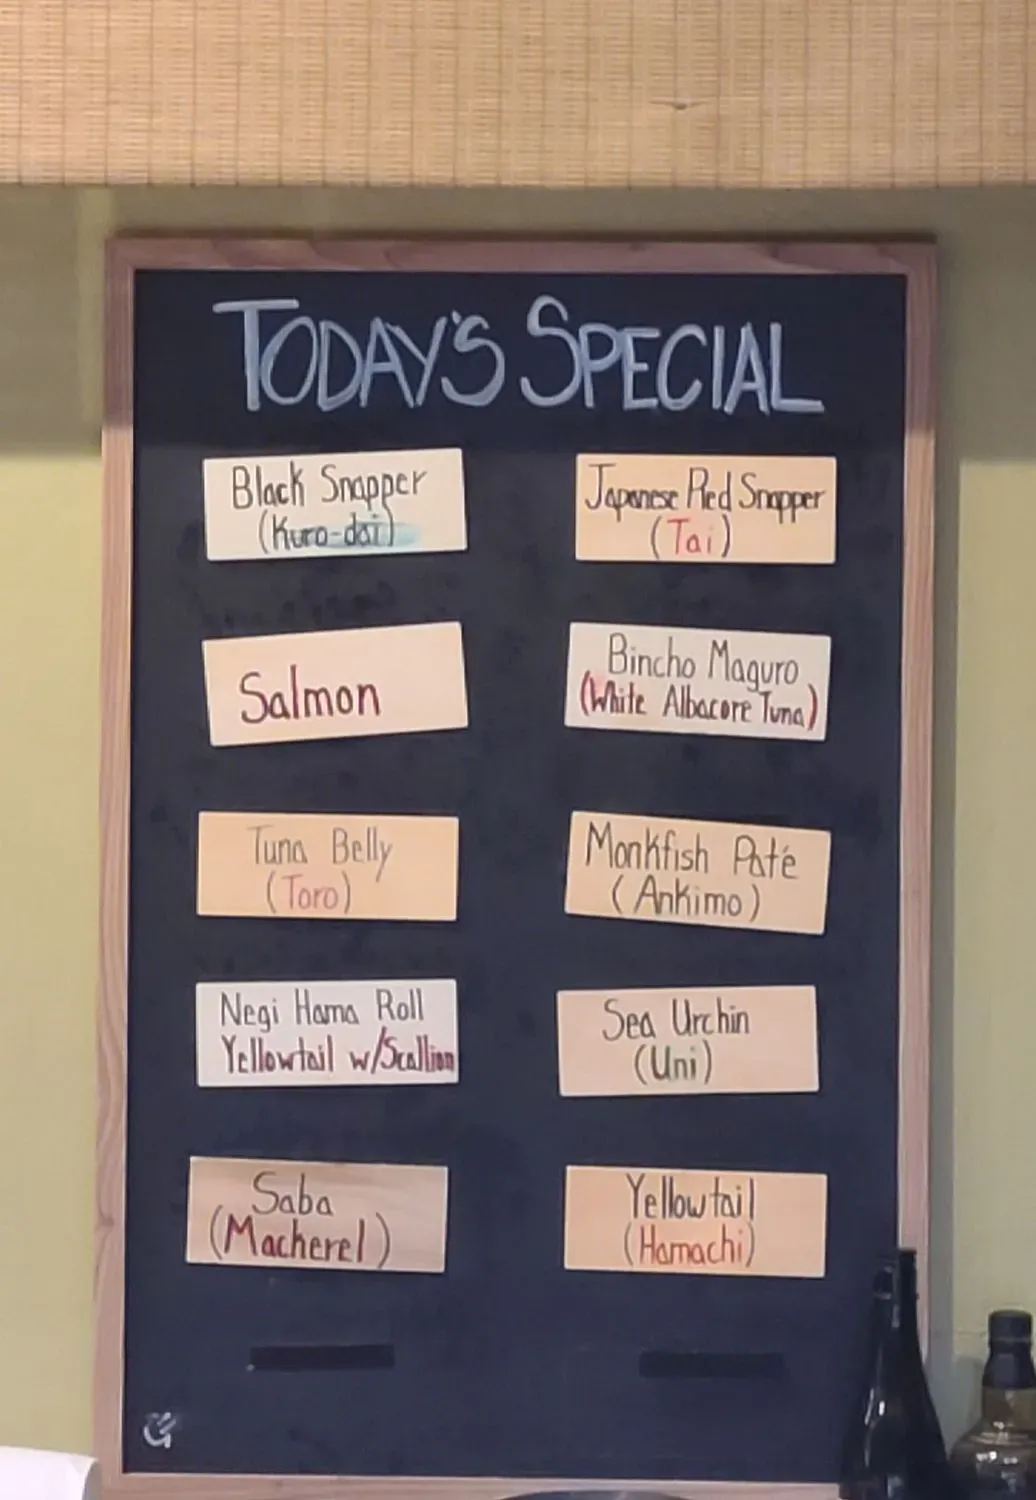 TODAY'S SPECIAL
Black Snapper
(Kuro-dai)
Japanese Red Snapper
(Tai)
Salmon
Bincho Maguro
(White Albacore Tuna)
Tuna Belly
(Toro)
Monkfish Paté
(Ankimo)
Negi Hama Roll
Yellowtail w/Scallion
Sea Urchin
(Uni)
Saba
(Macherel)
Yellowtail
(Hamachi)